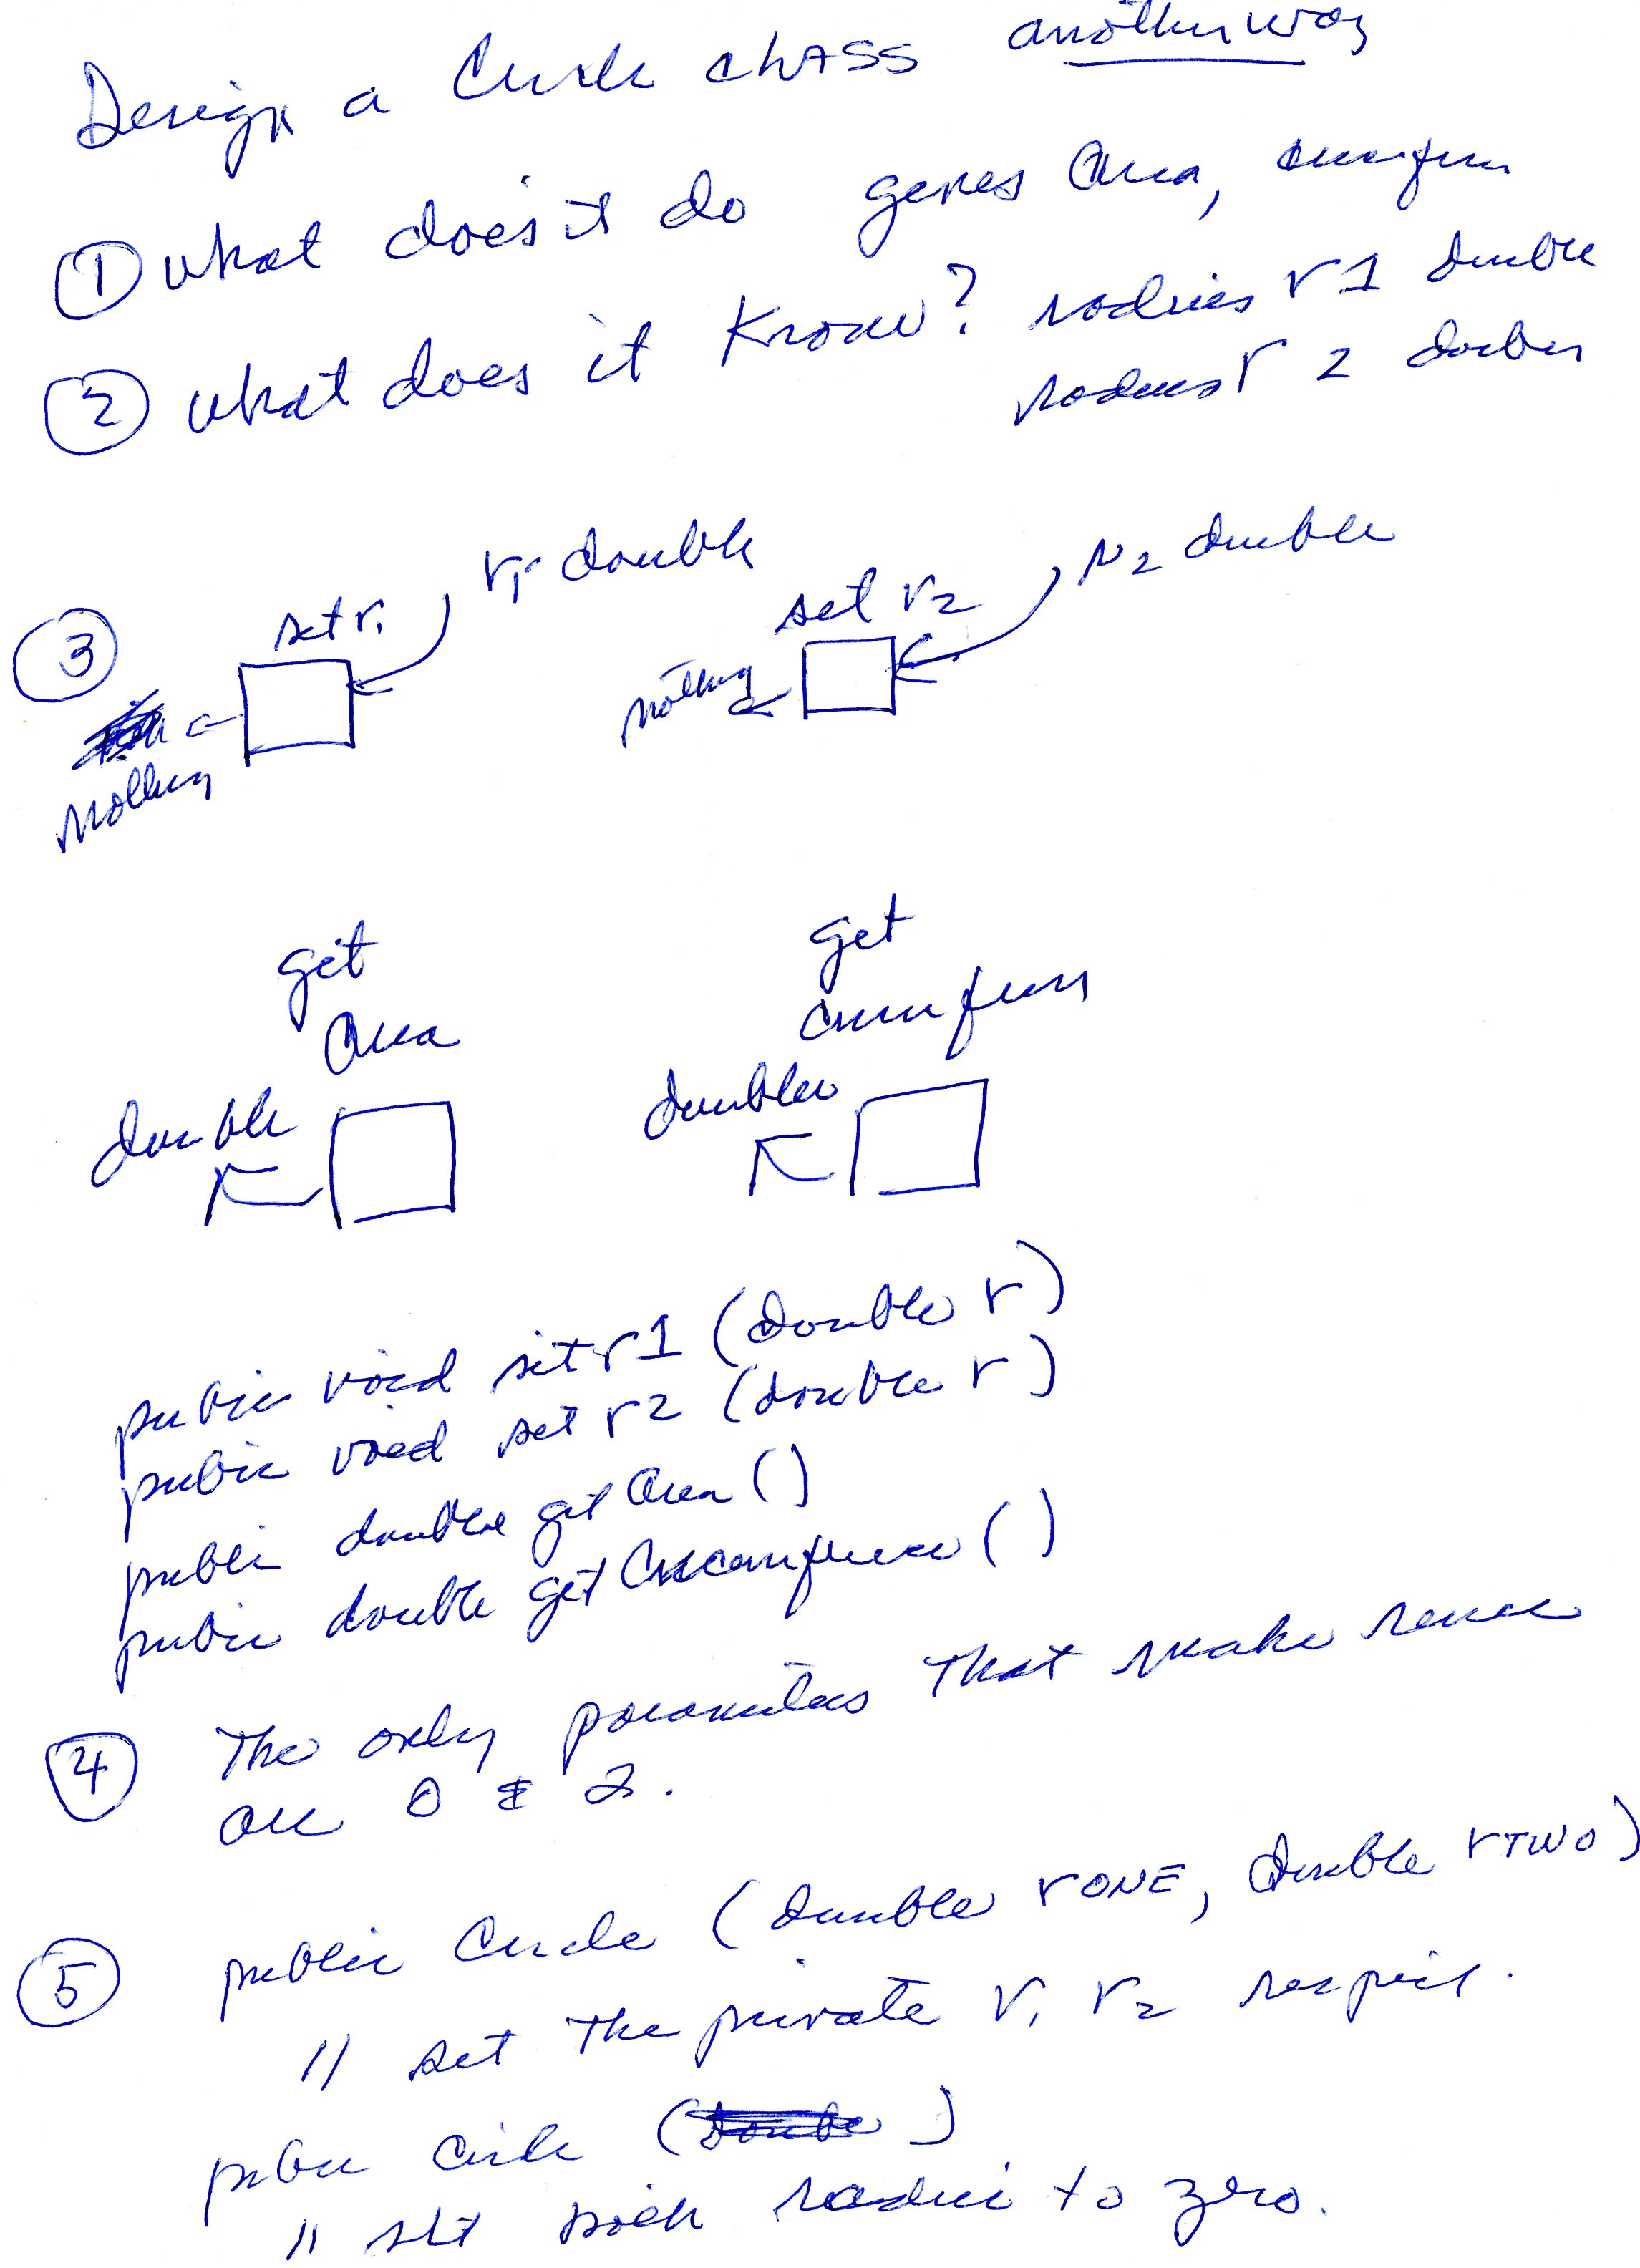 Design a Circle class another way
① what does it do gives Area, circumferen
② what does it know? radius r1 double
radius r2 double
③ set r1 r1 double
nothing
set r2 r2 double
nothing
get
Area
double
get
circumferen
double
public void setr1 (double r)
public void set r2 (double r)
public double get Area ()
public double get Circumference ()
④ The only parameters that make sense
are 0 & 2.
⑤ public Circle (double rONE, double rTWO)
// set the private r1 r2 respect.
public Circle ( )
// set both radii to zero.